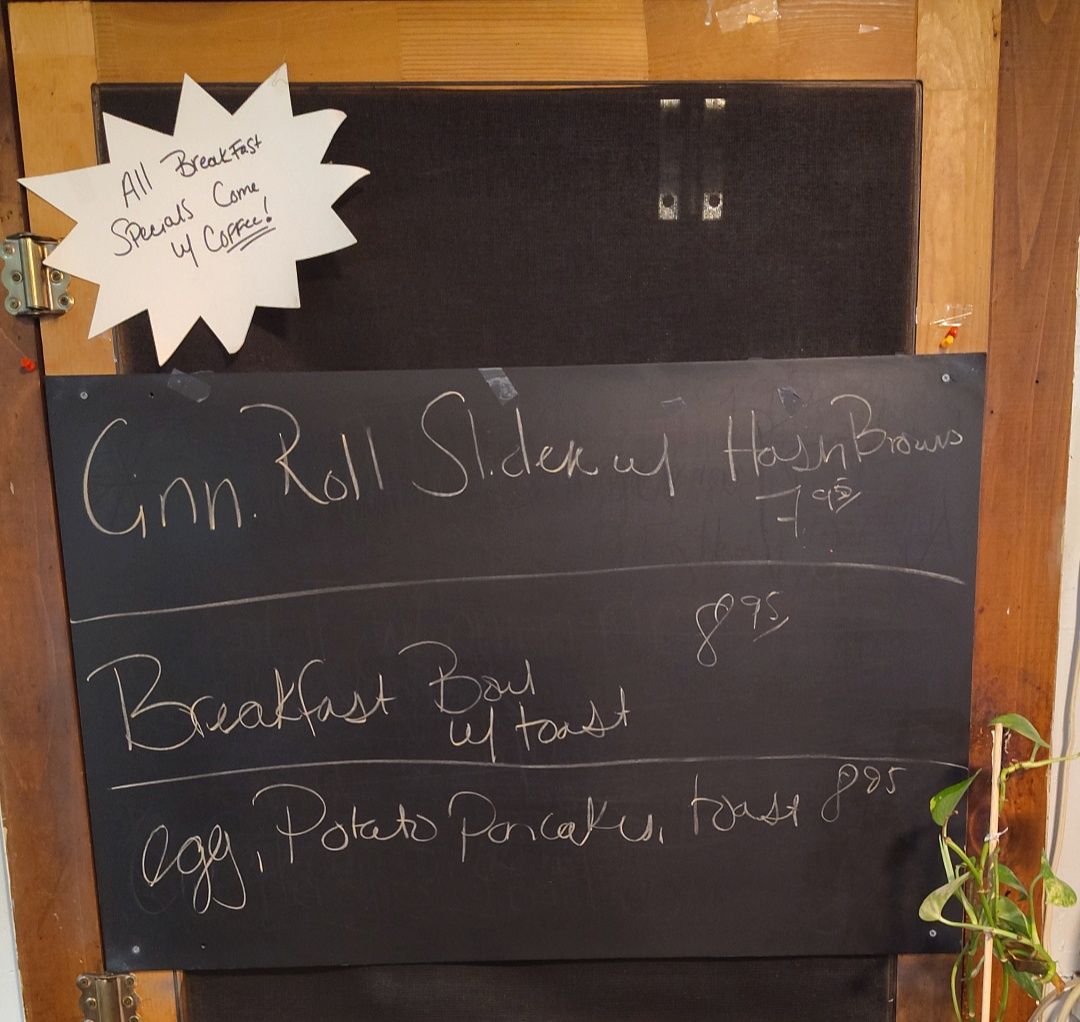 All Breakfast
Specials Come
w/ Coffee!
Cinn. Roll Slider w/ HashBrowns
7.95
8.95
Breakfast Bowl
w/ toast
egg, Potato Pancakes, toast 8.95